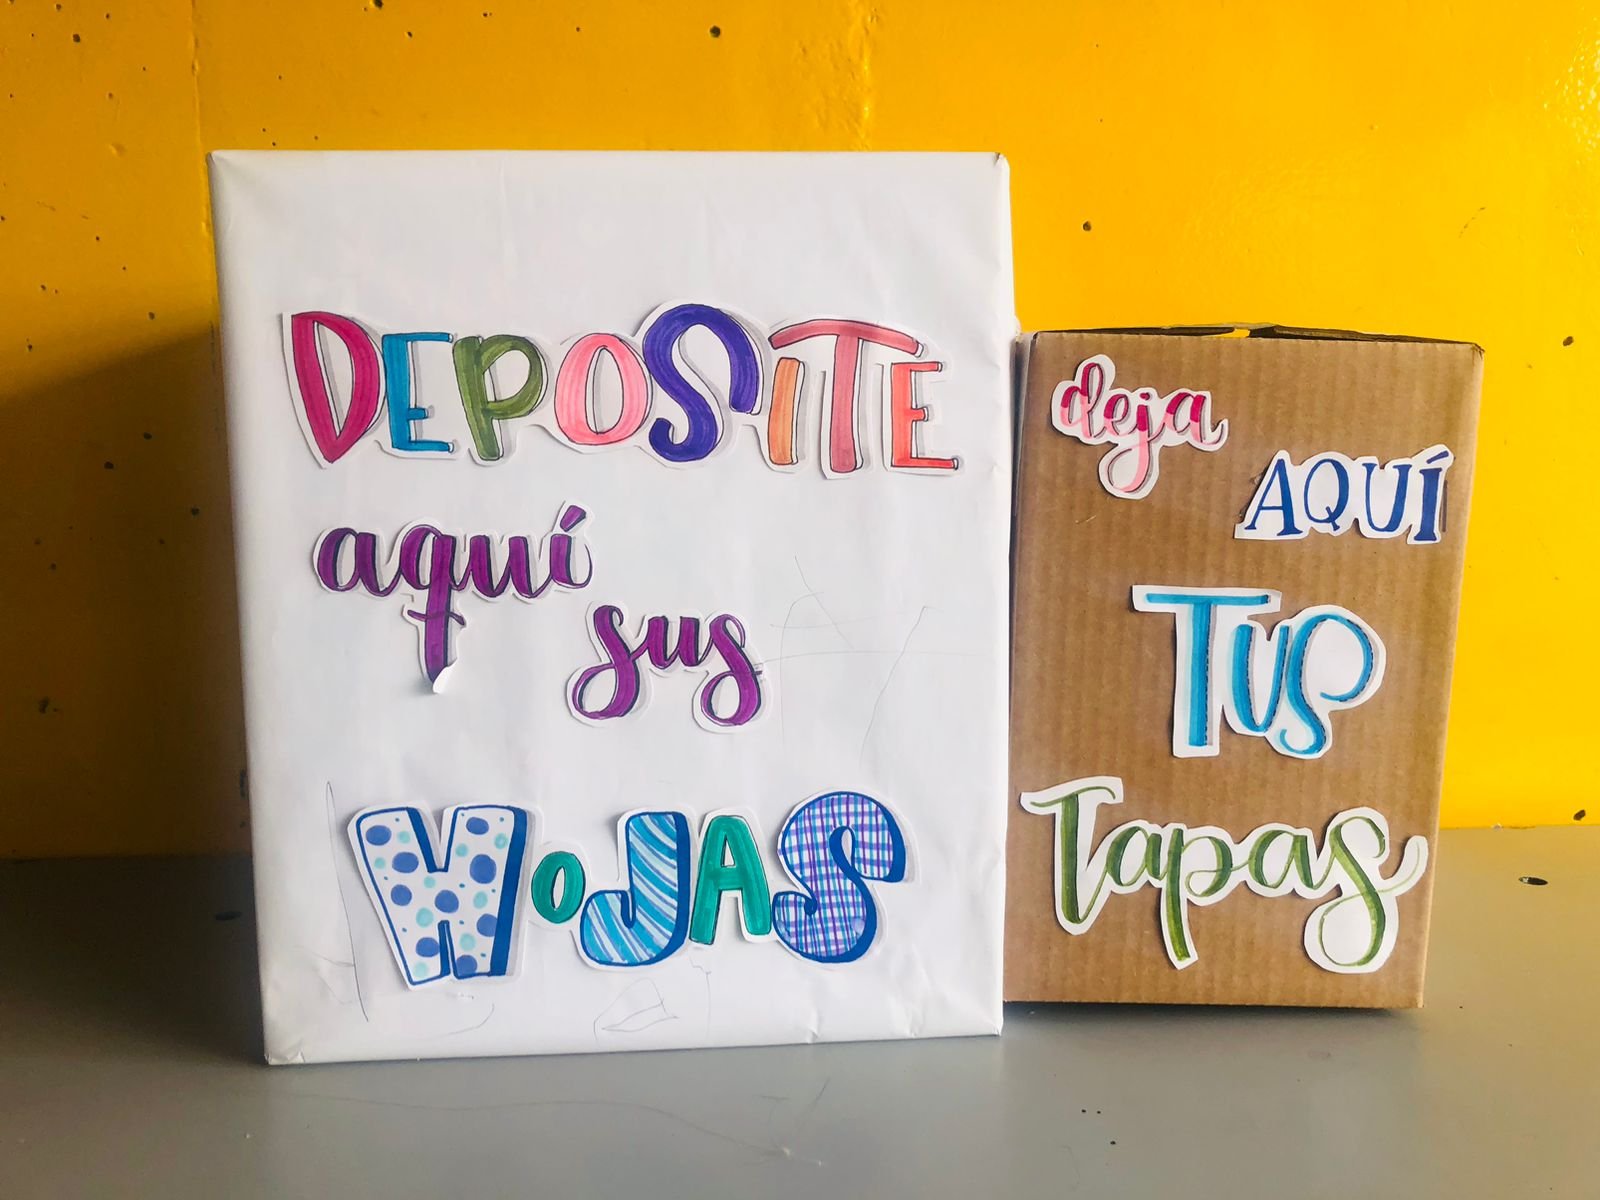 DEPOSITE
aquí
sus
HOJAS
deja
AQUÍ
TUS
Tapas